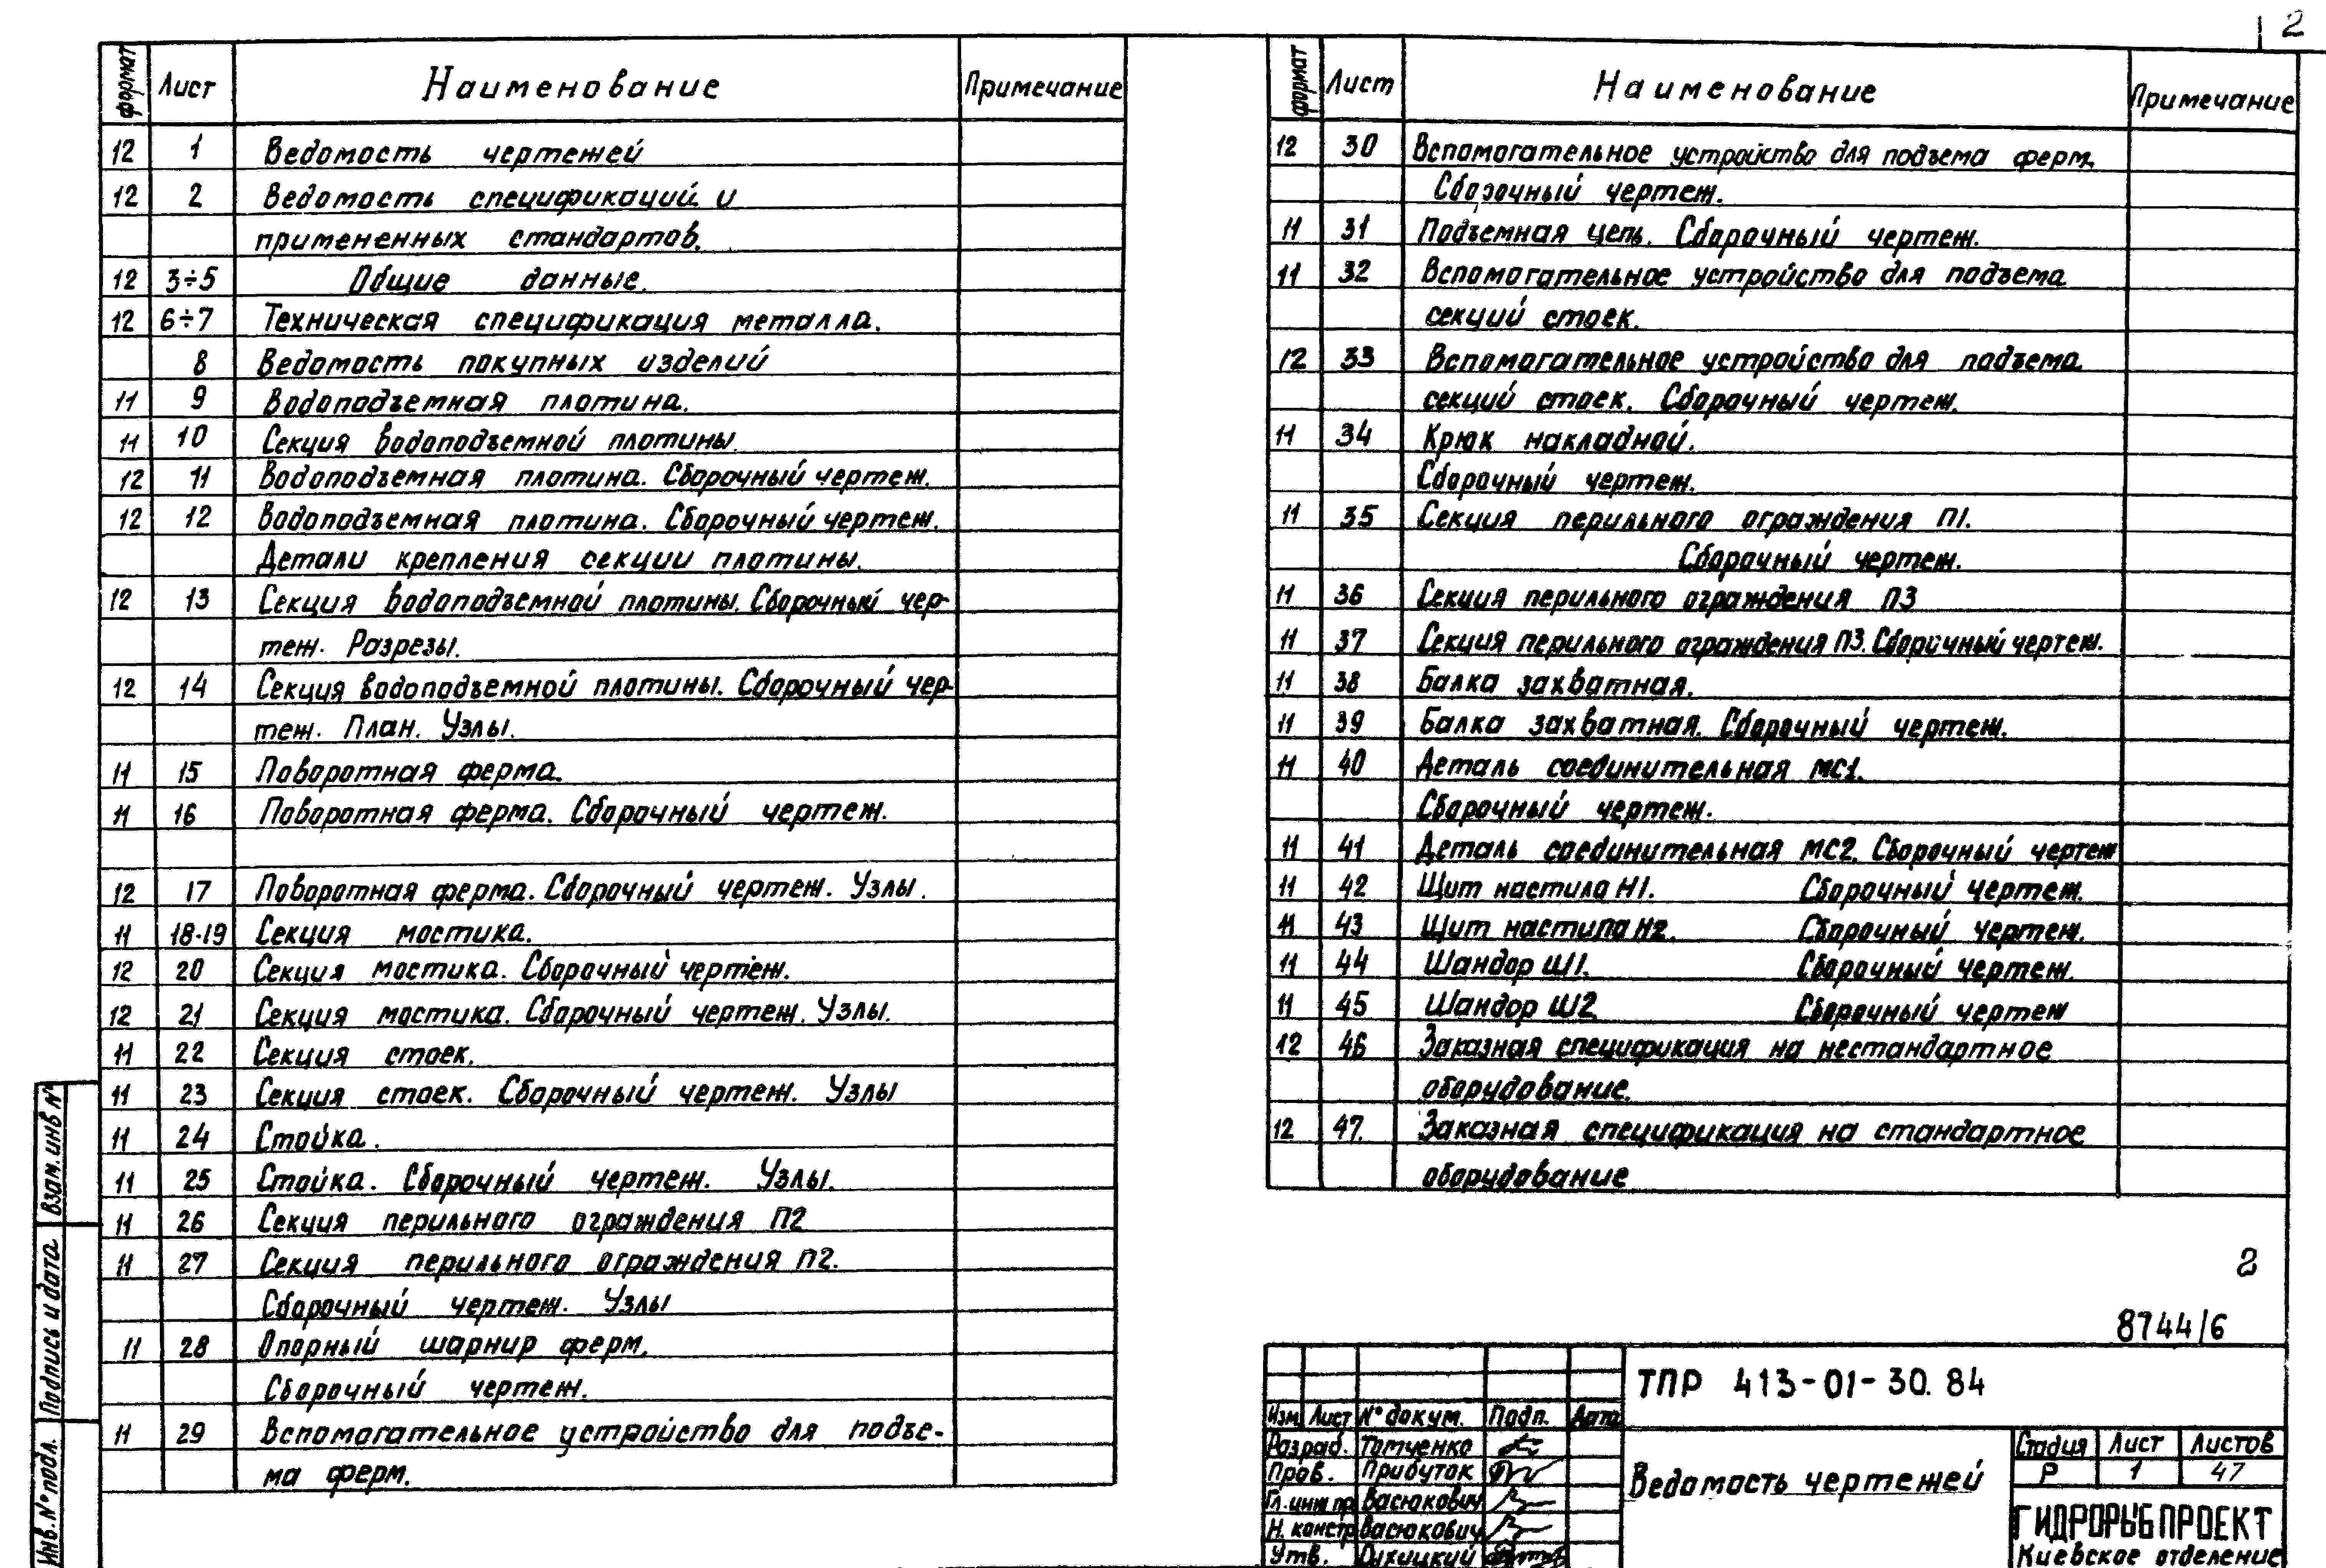 2
формат Лист Наименование Примечание
12 1 Ведомость чертежей
12 2 Ведомость спецификаций и
примененных стандартов.
12 3÷5 Общие данные.
12 6÷7 Техническая спецификация металла.
8 Ведомость покупных изделий
11 9 Водоподъемная плотина.
11 10 Секция водоподъемной плотины.
12 11 Водоподъемная плотина. Сборочный чертеж.
12 12 Водоподъемная плотина. Сборочный чертеж.
Детали крепления секции плотины.
12 13 Секция водоподъемной плотины. Сборочный чер-
теж. Разрезы.
12 14 Секция водоподъемной плотины. Сборочный чер-
теж. План. Узлы.
11 15 Поворотная ферма.
11 16 Поворотная ферма. Сборочный чертеж.
12 17 Поворотная ферма. Сборочный чертеж. Узлы.
11 18-19 Секция мостика.
12 20 Секция мостика. Сборочный чертеж.
12 21 Секция мостика. Сборочный чертеж. Узлы.
11 22 Секция стоек.
11 23 Секция стоек. Сборочный чертеж. Узлы
11 24 Стойка.
11 25 Стойка. Сборочный чертеж. Узлы.
11 26 Секция перильного ограждения П2
11 27 Секция перильного ограждения П2.
Сборочный чертеж. Узлы
11 28 Опорный шарнир ферм.
Сборочный чертеж.
11 29 Вспомогательное устройство для подъе-
ма ферм.
формат Лист Наименование Примечание
12 30 Вспомогательное устройство для подъема ферм.
Сборочный чертеж.
11 31 Подъемная цепь. Сборочный чертеж.
11 32 Вспомогательное устройство для подъема
секций стоек.
12 33 Вспомогательное устройство для подъема
секций стоек. Сборочный чертеж.
11 34 Крюк накладной.
Сборочный чертеж.
11 35 Секция перильного ограждения П1.
Сборочный чертеж.
11 36 Секция перильного ограждения П3
11 37 Секция перильного ограждения П3. Сборочный чертеж.
11 38 Балка захватная.
11 39 Балка захватная. Сборочный чертеж.
11 40 Деталь соединительная МС1.
Сборочный чертеж.
11 41 Деталь соединительная МС2. Сборочный чертеж
11 42 Щит настила Н1. Сборочный чертеж.
11 43 Щит настила Н2. Сборочный чертеж.
11 44 Шандор Ш1. Сборочный чертеж.
11 45 Шандор Ш2 Сборочный чертеж
12 46 Заказная спецификация на нестандартное
оборудование.
12 47. Заказная спецификация на стандартное
оборудование
2
8744/6
ТПР 413-01-30.84
Изм. Лист № докум. Подп. Дата
Разраб. Томченко
Пров. Прибуток
Гл.инж.пр Васюкович
Н. констр Васюкович
Утв.
Ведомость чертежей
Стадия Лист Листов
Р 1 47
ГИДРОРЫБПРОЕКТ
Киевское отделение
Взам.инв №
Подпись и дата
Инв.№ подл.